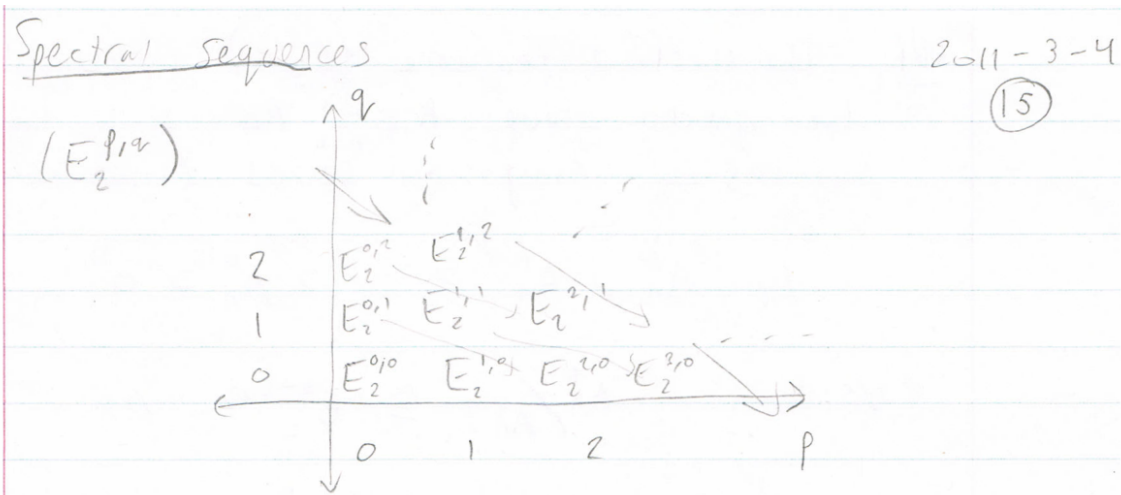 Spectral sequences 2011-3-4
(15)
q
(E_2^{p,q})
2 E_2^{0,2} E_2^{1,2}
1 E_2^{0,1} E_2^{1,1} E_2^{2,1}
0 E_2^{0,0} E_2^{1,0} E_2^{2,0} E_2^{3,0}
0 1 2 p